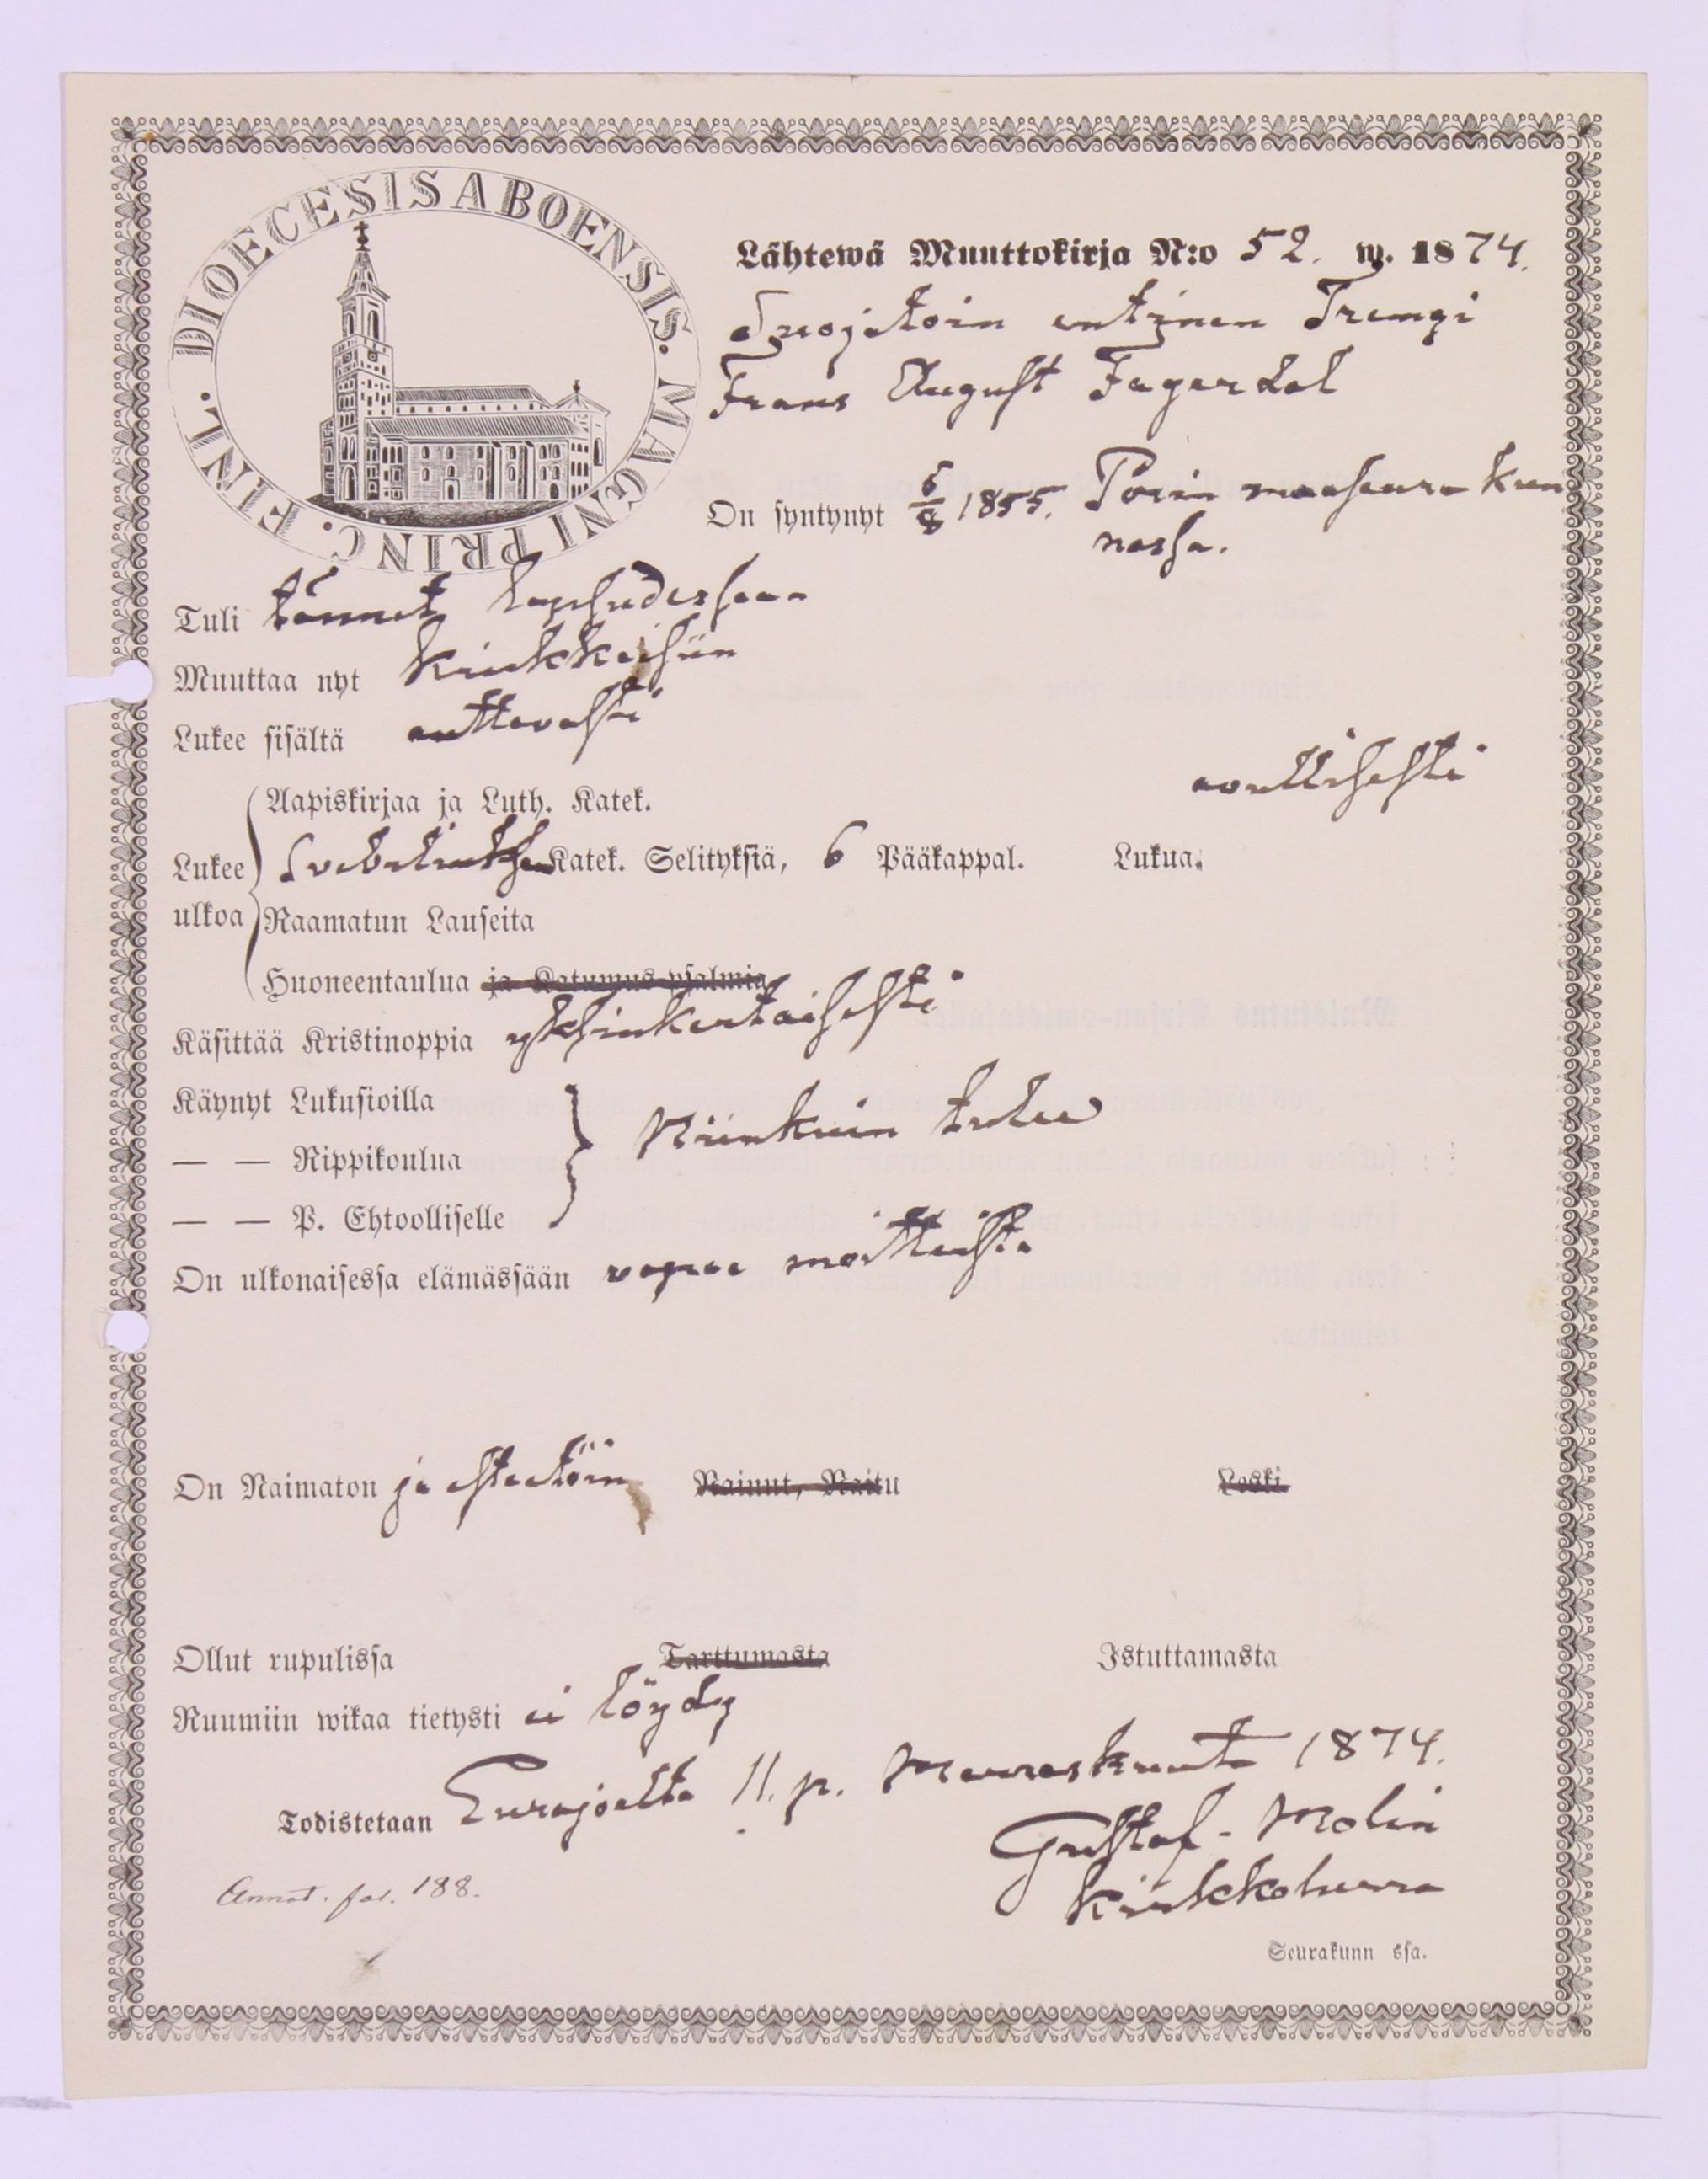 DIOECESIS ABOENSIS. MAGNI PRINC. FINL.
Lähtewä Muuttokirja N:o 52. w. 1874.
Suojatoin entinen Trengi
Frans August Fagerdal
On syntynyt 6/8 1855. Porin maaseurakun
nassa.
Tuli tänne lapsudessaan
Muuttaa nyt Kiukkaisiin
Lukee sisältä auttavasti
auttisesti
Aapiskirjaa ja Luth. Katek.
Lukee Svebeliuksen Katek. Selityksiä, 6 Pääkappal. Lukua.
ulkoa Raamatun Lauseita
Huoneentaulua ja Katumus-psalmia
Käsittää Kristinoppia yksinkertaisesti
Käynyt Lukusioilla
— — Rippikoulua Niinkuin tulee
— — P. Ehtoolliselle
On ulkonaisessa elämässään vapaa moitteista
On Naimaton ja esteetöin Nainut, Naitu Leski.
Ollut rupulissa Tarttumasta Istuttamasta
Ruumiin wikaa tietysti ei löydy
Todistetaan Eurajoelta 11. p. Marraskuuta 1874.
Gustaf Molin
Kirkkoherra
Annot. fol. 188.
Seurakunn ssa.